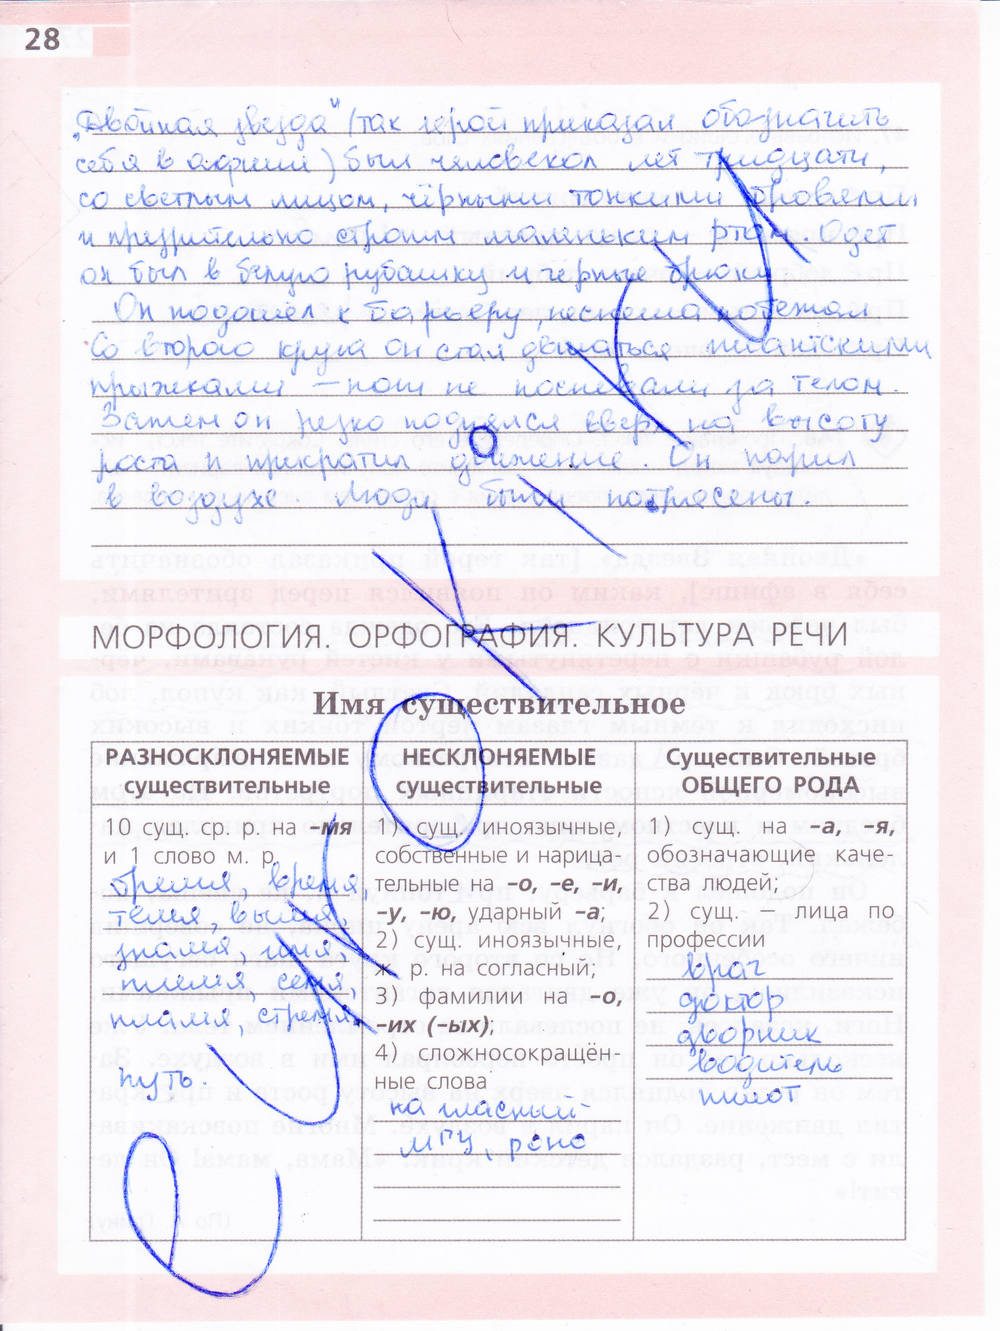 28
„Двойная звезда" (так герой приказал обозначить
себя в афише) был человеком лет тридцати,
со светлым лицом, чёрными тонкими бровями
и презрительно строгим маленьким ртом. Одет
он был в белую рубашку и чёрные брюки.
Он подошёл к барьеру, неспеша побежал.
Со второго круга он стал двигаться гигантскими
прыжками – ноги не поспевали за телом.
Затем он резко поднялся вверх на высоту
роста и прекратил движение. Он парил
в воздухе. Люди были потрясены.
МОРФОЛОГИЯ. ОРФОГРАФИЯ. КУЛЬТУРА РЕЧИ
Имя существительное
РАЗНОСКЛОНЯЕМЫЕ существительные
10 сущ. ср. р. на –мя
и 1 слово м. р.
бремя, время,
темя, вымя,
знамя, имя,
племя, семя,
пламя, стремя
путь.
НЕСКЛОНЯЕМЫЕ существительные
1) сущ. иноязычные,
собственные и нарица-
тельные на –о, –е, –и,
–у, –ю, ударный –а;
2) сущ. иноязычные,
ж. р. на согласный;
3) фамилии на –о,
–их (–ых);
4) сложносокращён-
ные слова
на гласный
МГУ, роно
Существительные ОБЩЕГО РОДА
1) сущ. на –а, –я,
обозначающие каче-
ства людей;
2) сущ. – лица по
профессии
врач
доктор
дворник
водитель
пилот